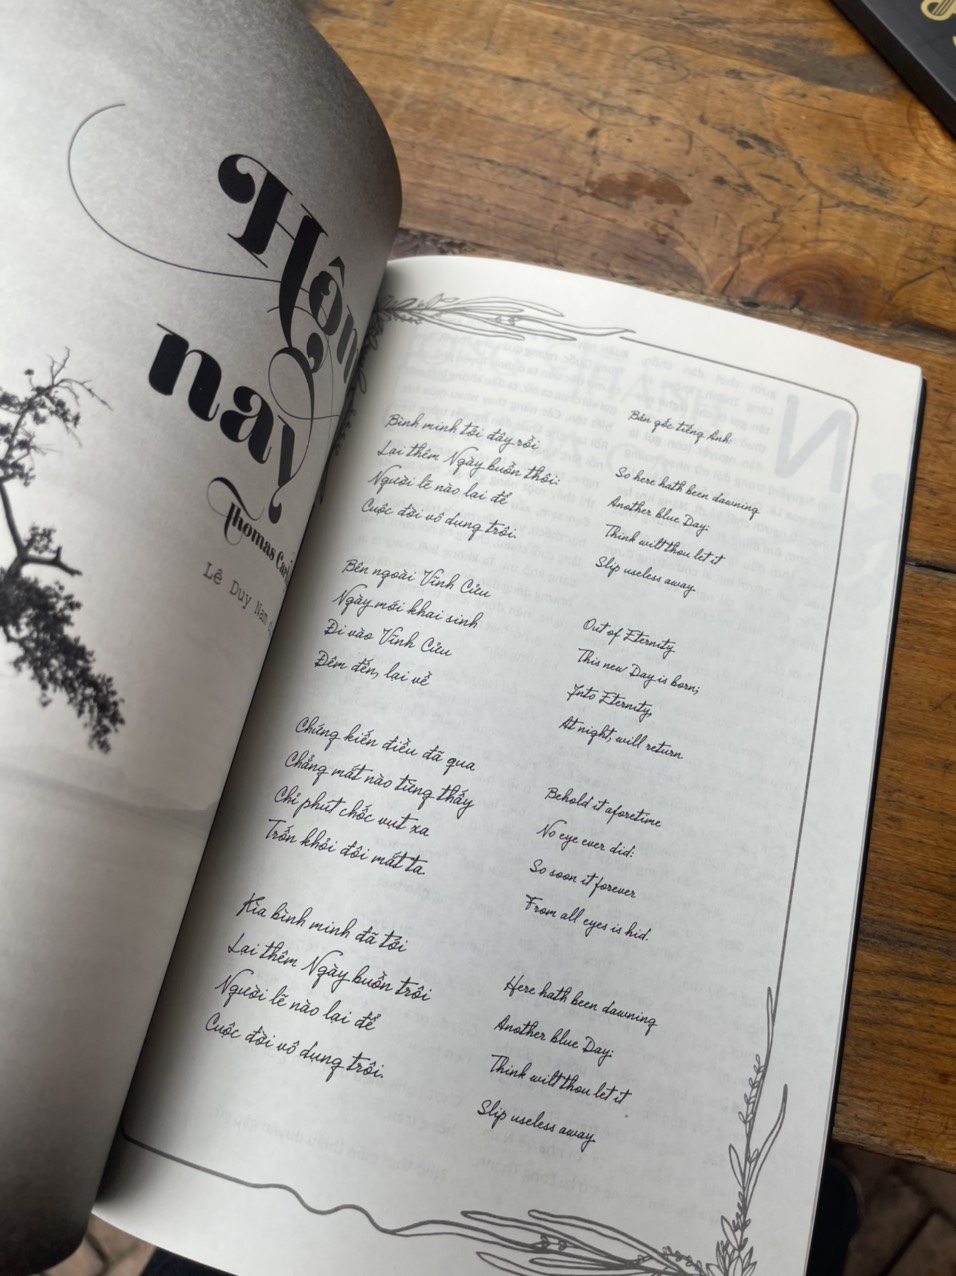 Hôm
nay
Thomas
Lê Duy Nam
Bình minh tới đây rồi
Lại thêm Ngày buồn thôi:
Người lẽ nào lại để
Cuộc đời vô dụng trôi.
Bên ngoài Vĩnh Cửu
Ngày mới khai sinh
Đi vào Vĩnh Cửu
Đêm đến, lại về
Chứng kiến điều đã qua
Chẳng mắt nào từng thấy
Chỉ phút chốc vụt xa
Trốn khỏi đôi mắt ta.
Kìa bình minh đã tới
Lại thêm Ngày buồn trôi
Người lẽ nào lại để
Cuộc đời vô dụng trôi.
Bản gốc tiếng Anh:
So here hath been dawning
Another blue Day:
Think wilt thou let it
Slip useless away.
Out of Eternity
This new Day is born;
Into Eternity,
At night, will return
Behold it aforetime
No eye ever did:
So soon it forever
From all eyes is hid.
Here hath been dawning
Another blue Day:
Think wilt thou let it
Slip useless away.